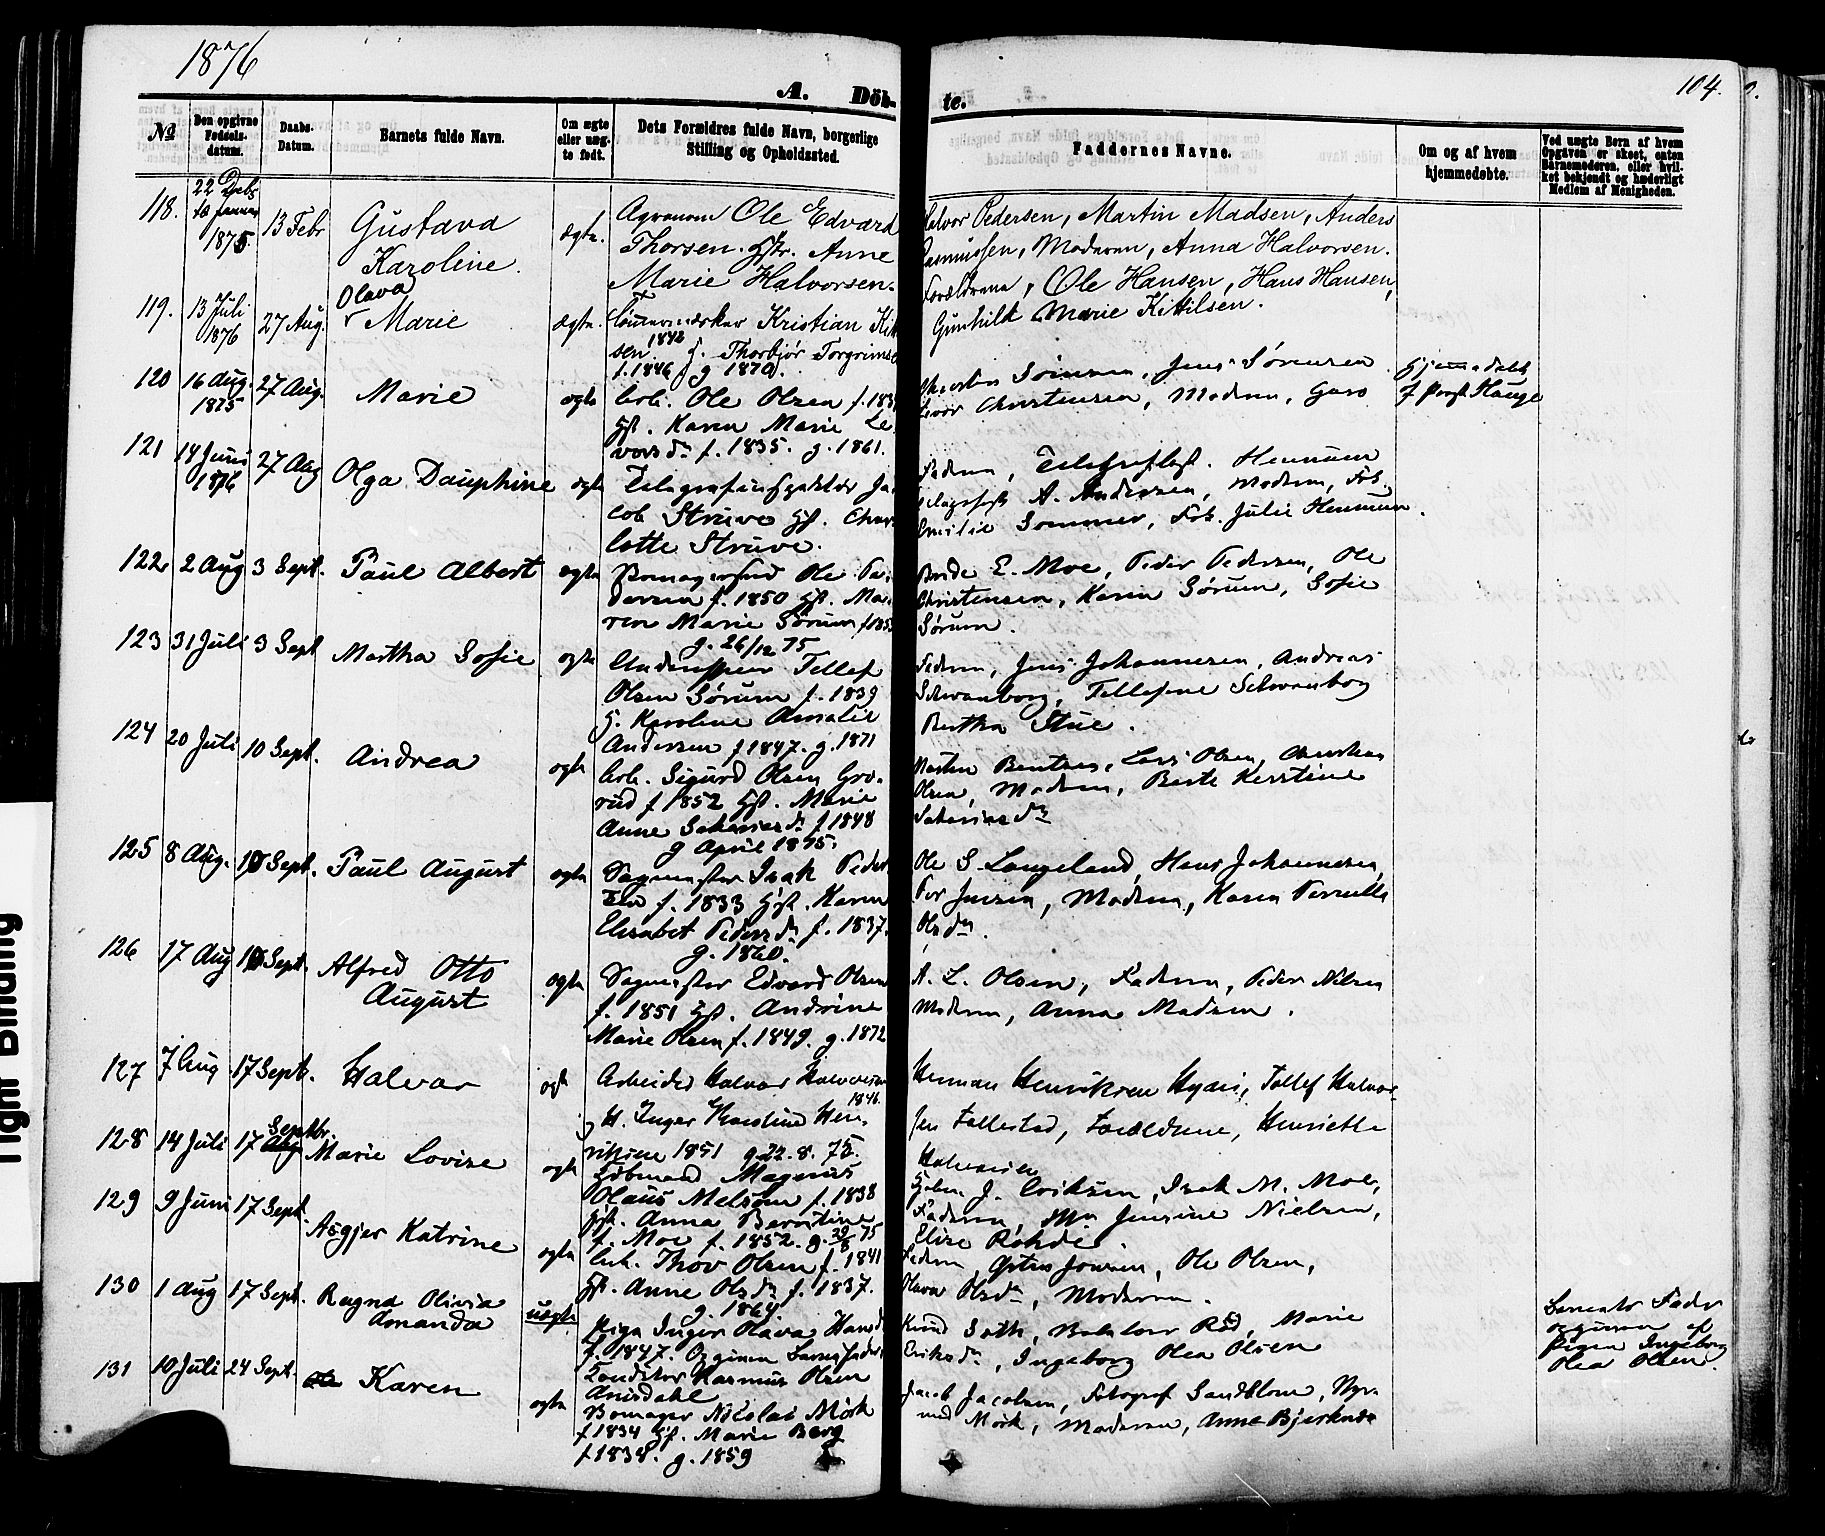 1876
104.
A. Döb-
te.
No
Den opgivne Fødsels-datum.
Daabs-Datum.
Barnets fulde Navn.
Om ægte eller uæg-te født.
Dets Forældres fulde Navn, borgerlige Stilling og Opholdssted.
Faddernes Navne.
Om og af hvem hjemmedøbte.
Ved uægte Børn af hvem Opgaven er skeet, enten Barnemoderen, eller hvil-ket bekjendt og hæderligt Medlem af Menigheden.
118.
22
1875
13 Febr
Gustava
Karoline.
ægte.
Agronom Ole Edvard
Thorsen. Hstr. Anne
Marie Halvorsen.
Halvor Pedersen, Martin Madsen, Anders
Rasmussen, Moderen, Anna Halvorsen.
119.
13 Juli
1876
27 Aug.
Olava
Marie
ægte.
Kristian
1842
sen. H. Thorbjør Torgrimse
f. 1846 g 1870.
Forældrene, Ole Hansen, Hans Hansen,
Gunhild Marie Kittilsen.
120
16 Aug.
1875
27 Aug.
Marie
ægte
Arb. Ole Olsen f. 183
Hst. Karen Marie Le
vorsdr f. 1835. g. 1861.
Sørensen, Jens Sørensen
Levor Christensen, Modren, Guro
Hjemmedøbt
f Præst Hauge
121
18 Juni
1876
27 Aug
Olga Dauphine
ægte
Telegrafinspektør Ja
cob Struve Hst. Char
lotte Struve.
Fadren, Telegrafbest. Hennum
A. Andersen, Modren, Frk.
Emilie Sommer, Frk. Julie Hennum.
122
2 Aug
3 Sept.
Paul Albert
ægte
Bomagersvend Ole Pe-
dersen f. 1850 Hst. Ma-
ren Marie Sørum f 185
g. 26/12 75
E. Moe, Peder Pedersen, Ole
Christensen, Karen Sørum, Sofie
Sørum.
123
31 Juli
3 Sept
Martha Sofie
ægte
Tellef
Olsen Sørum f. 1839
H. Karoline Amalie
Andersen f 1847. g. 1871
Fadren, Jens Johannesen, Andreas
Schwanborg, Tellefine Schwanborg
Bertha Stue.
124
20 Juli
10 Sept.
Andrea
ægte
Arb. Sigurd Olsen Gro-
rud f 1852 Hst. Marie
Anne Sakariasdr f 1848
g April 1875.
Morten Bentsen, Lars Olsen, Christian
Olsen, Modren, Berte Kerstine
Sakariasdr
125
8 Aug.
10 Sept.
Paul August
ægte
Sagmester Isak Peder
sen f. 1833 Hst. Karen
Elisabet Pedersdr f. 1837.
g. 1860.
Ole S. Langeland, Hans Johannesen,
Per Jensen, Modren, Karen Pernille
Olsdr.
126
17 Aug
10 Sept.
Alfred Otto
August
ægte
Sagmester Edvard Olsen
f. 1851 Hst. Andrine
Marie Olsen f. 1849. g. 1872
A. L. Olsen, Fadren, Peder Nilsen
Modren, Anna Madsen.
127
7 Aug
17 Sept.
Halvor
ægte
Arbeider Halvor Halvorsen
1846.
g H. Inger Karoline Hen-
riksene 1851 g 22. 8. 75.
Herman Henriksen Hydis, Tollef Halvor-
sen Follestad, Forældrene, Henriette
Halvorsen
128
14 Juli
17 Septbr.
Marie Lovise
ægte
Kjøbmand Magnus
Olaus Melsom f. 1838
Hst. Anna Berntine
f. Moe f. 1852. g. 75
J. Eriksen, Isak M. Moe,
Fadren, Jensine Nielsen,
Elise Rohde.
129
9 Juni
17 Sept.
Asgjer Katrine
ægte
Arb. Thov Olsen f. 1841
Hst. Anne Olsdr f. 1837.
g. 1864
Fadren, Jonsen, Ole Olsen,
Olava Olsdr, Moderen.
130
1 Aug
17 Sept.
Ragna Olivia
Amanda
uægte
Pige Inger Olava Hansd
f. 1847. Opgiven Barnefader
Konditor Rasmus Olsen
Arisdahl
Knud Sath, Rød, Marie
Eriksdr, Ingeborg Olea Olsen
Barnets Fader
opgiven af
Pigen Ingeborg
Olea Olsen.
131
10 Juli
24 Sept.
Karen
ægte
Bomager Nicolai Mørk
f 1834 Hst. Marie Berg
f 1838. g. 1859
Jacob Jacobsen, Fotograf Sandblom,
Mørk, Moderen, Anne Bjerknes
Tight Binding